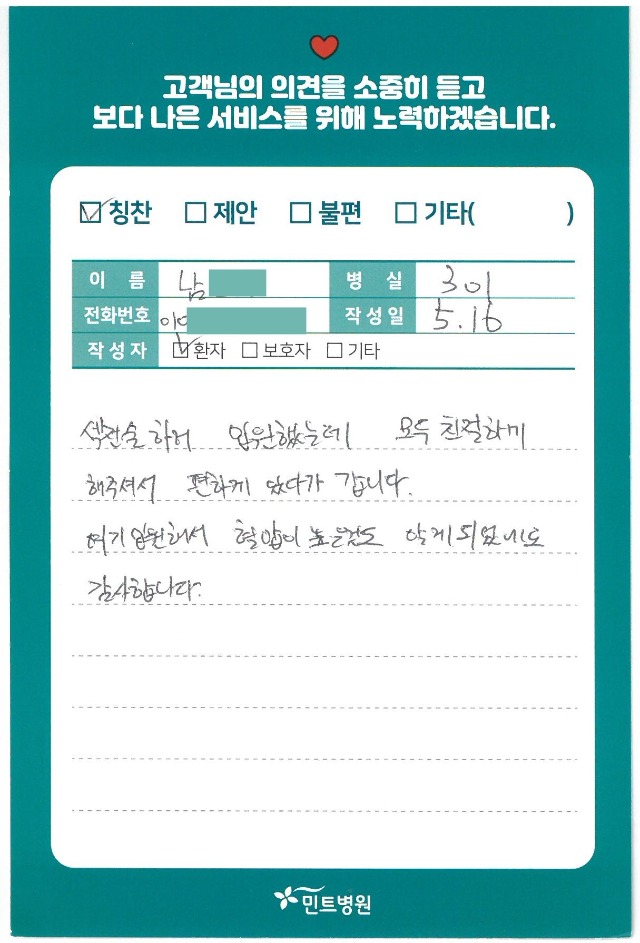 고객님의 의견을 소중히 듣고
보다 나은 서비스를 위해 노력하겠습니다.
☑ 칭찬 □ 제안 □ 불편 □ 기타( )
이 름 남 병 실 301
전화번호 010 작성일 5.16
작성자 ☑환자 □보호자 □기타
색전술 하러 입원했는데 모두 친절하게
해주셔서 편하게 있다가 갑니다.
여기 입원해서 혈압이 높은걸도 알게되었네도
감사합니다.
민트병원